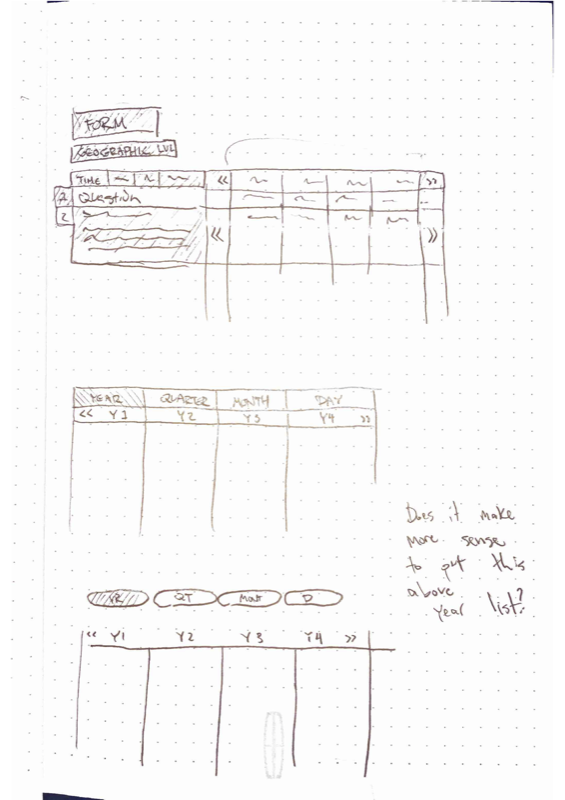 FORM
GEOGRAPHIC LVL
TIME « »
Question
2
« »
YEAR QUARTER MONTH DAY
« Y1 Y2 Y3 Y4 »
Does it make
more sense
to put this
above
year list?
YR QT MONT D
« Y1 Y2 Y3 Y4 »